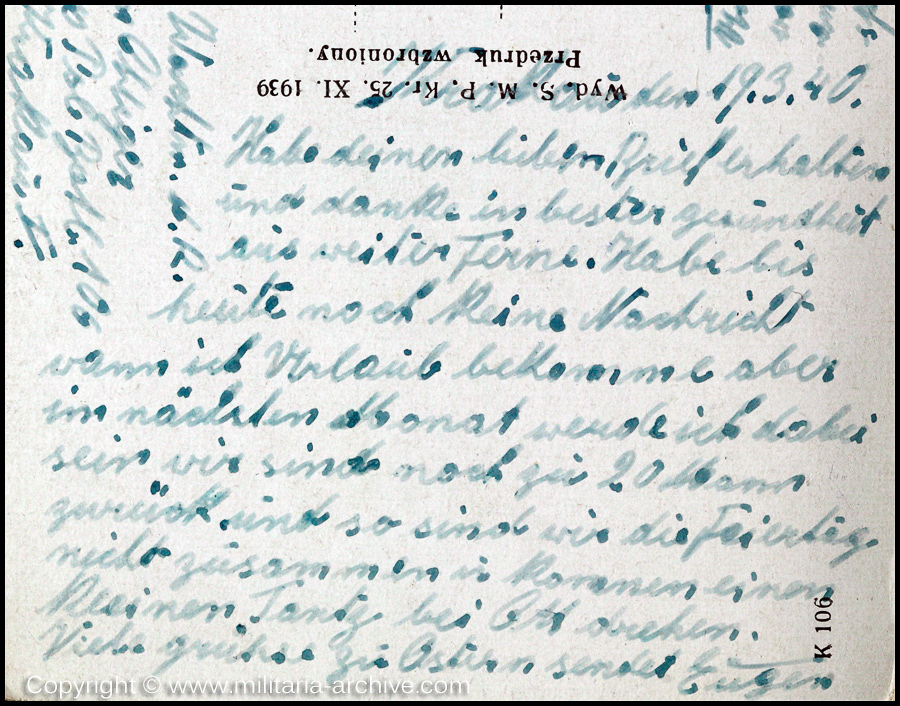 Przedruk wzbroniony.
Wyd. S. M. P. Kr. 25. XI. 1939
den 19.3.40.
Habe deinen lieben Brief erhalten
und danke in bester gesundheit
aus weiter Ferne. Habe bis
heute noch keine Nachricht
wann ich Urlaub bekomme aber
im nächsten Monat werde ich dabei
sein wir sind noch zu 20 Mann
zurück und so sind wir die Feiertag
nicht zusammen u. können einen
kleinen Tantz bei drehen.
Viele grühse zu Ostern sendet Eugen
K 106
Copyright © www.militaria-archive.com